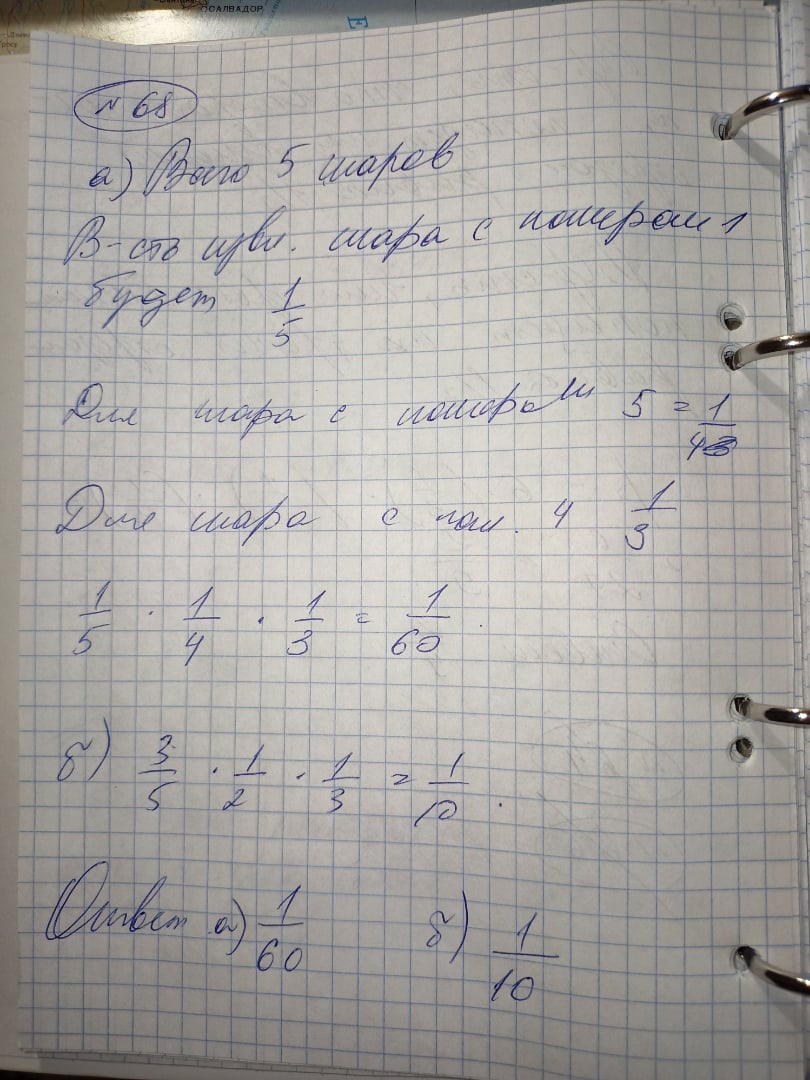 САЛВАДОР
№ 68
а) Всего 5 шаров
В-сть извл. шара с номером 1
будет 1/5
Для шара с номером 5 = 1/4
Для шара с ном. 4 1/3
1/5 · 1/4 · 1/3 = 1/60.
б) 3/5 · 1/2 · 1/3 = 1/10.
Ответ а) 1/60 б) 1/10